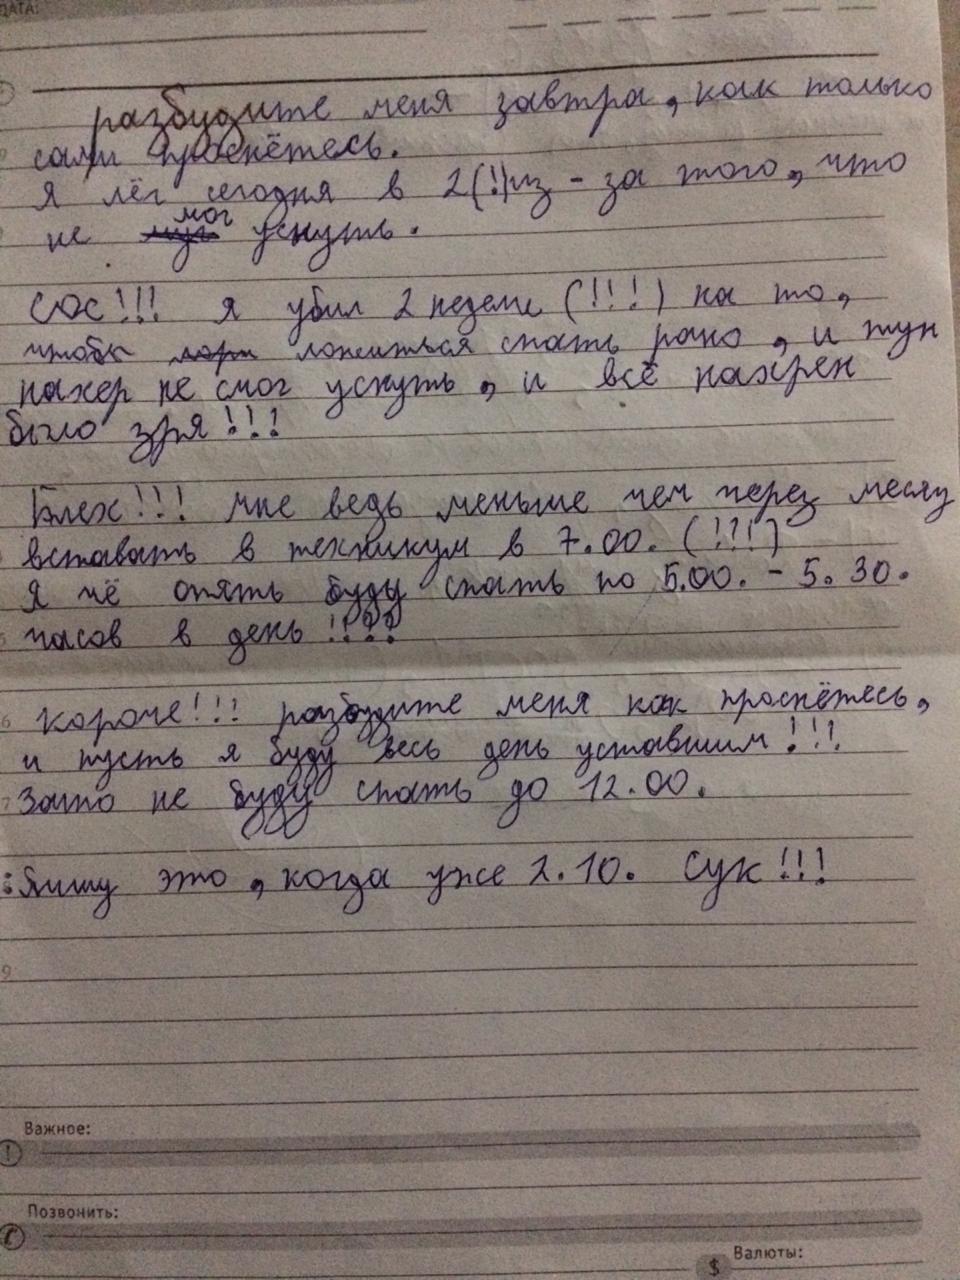 ДАТА:
разбудите меня завтра, как только
сами проснётесь.
Я лёг сегодня в 2(!)из-за того, что
мог
не уснуть.
СОС!!! Я убил 2 недели (!!!) на то,
чтобы ложиться спать рано, и тун
нахер не смог уснуть, и всё нахрен
было зря!!!
Блех!!! мне ведь меньше чем через месяц
вставать в техникум в 7.00. (!!!)
Я чё опять буду спать по 5.00. - 5.30.
часов в день!???
короче!!! разбудите меня как проснётесь,
и пусть я буду весь день уставшим!!!
Зато не буду спать до 12.00.
Пишу это, когда уже 2.10. Сук!!!
6
7
9
Важное:
!
Позвонить:
$ Валюты: